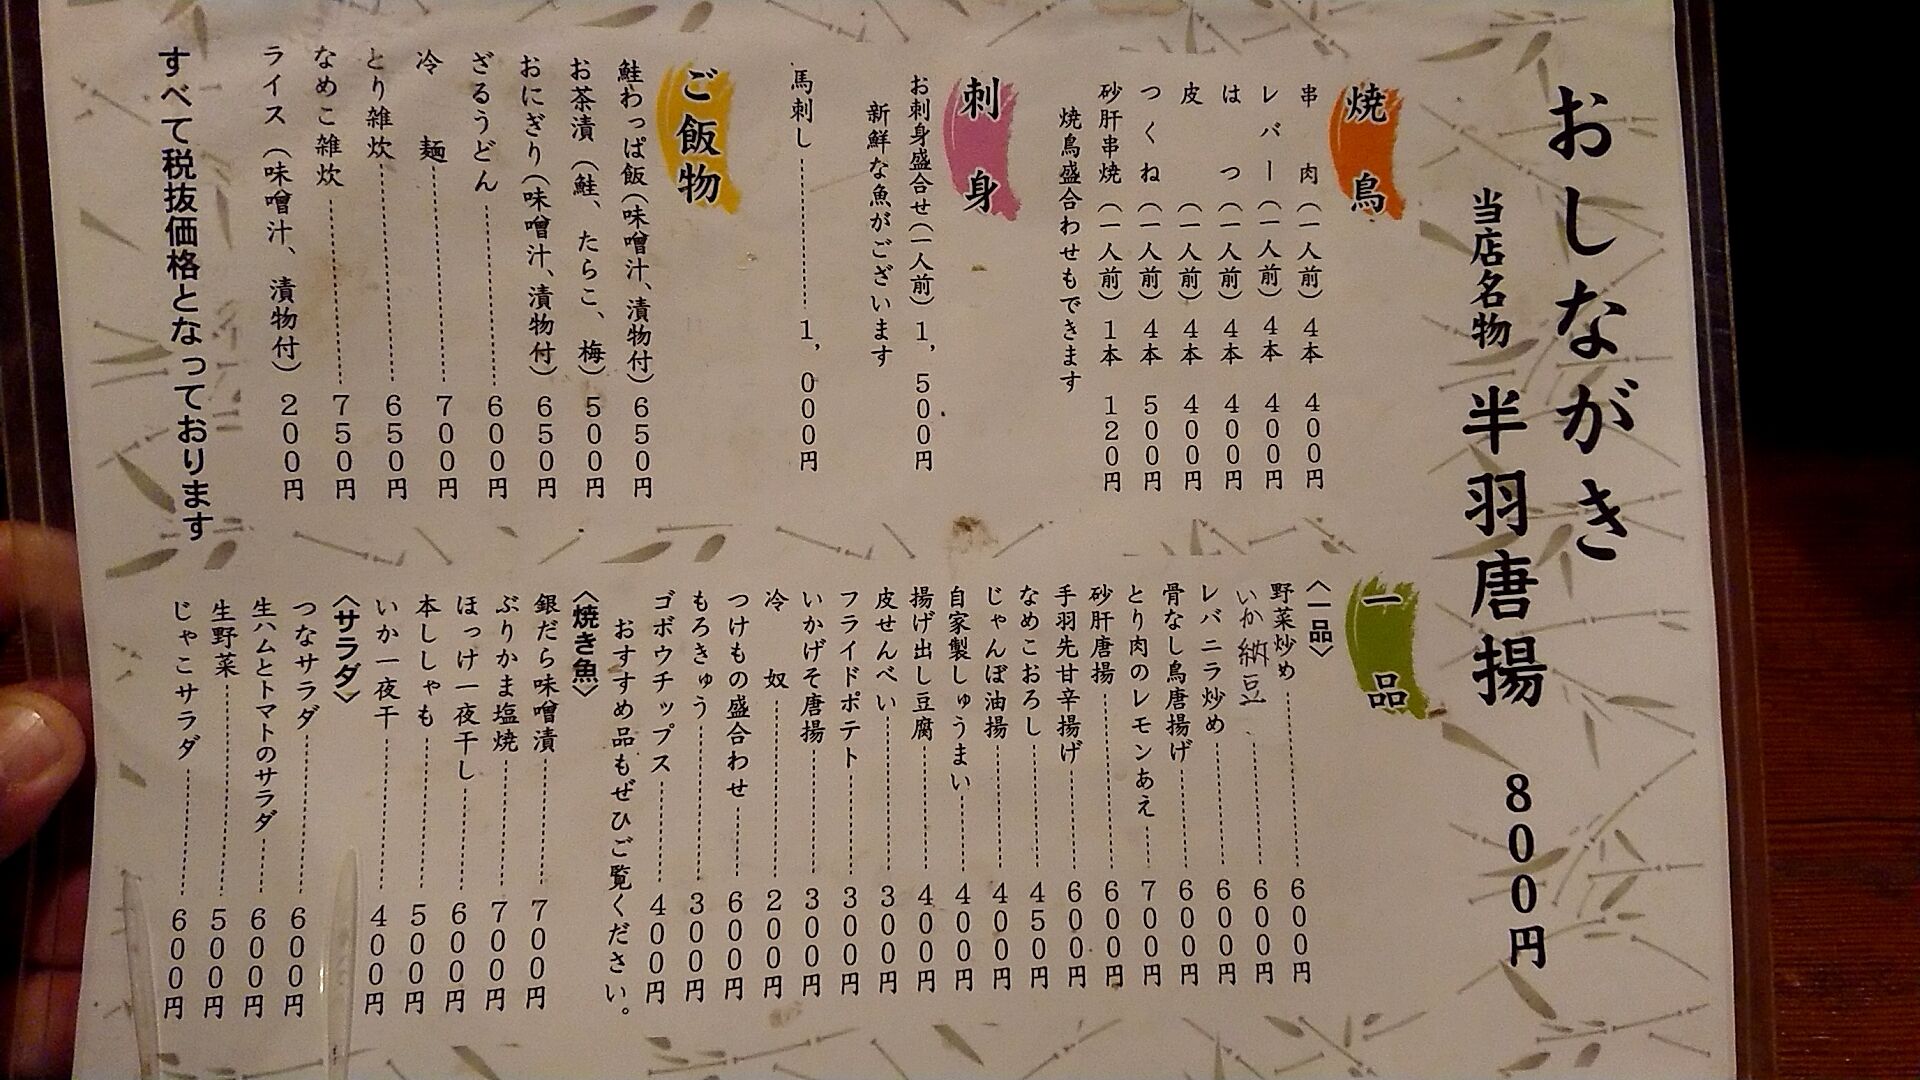 おしながき
当店名物 半羽唐揚 800円
焼鳥
串肉(一人前)4本 400円
レバー(一人前)4本 400円
はつ(一人前)4本 400円
皮(一人前)4本 400円
つくね(一人前)4本 500円
砂肝串焼(一人前)1本 120円
焼鳥盛合わせもできます
刺身
お刺身盛合せ(一人前)1,500円
新鮮な魚がございます
馬刺し 1,000円
ご飯物
鮭わっぱ飯(味噌汁、漬物付)650円
お茶漬(鮭、たらこ、梅)500円
おにぎり(味噌汁、漬物付)650円
ざるうどん 600円
冷麺 700円
とり雑炊 650円
なめこ雑炊 750円
ライス(味噌汁、漬物付)200円
すべて税抜価格となっております
一品
〈一品〉
野菜炒め 600円
いか納豆 600円
レバニラ炒め 600円
骨なし鳥唐揚げ 600円
とり肉のレモンあえ 700円
砂肝唐揚 600円
手羽先甘辛揚げ 600円
なめこおろし 450円
じゃんぼ油揚 400円
自家製しゅうまい 400円
揚げ出し豆腐 400円
皮せんべい 300円
フライドポテト 300円
いかげそ唐揚 300円
冷奴 200円
つけもの盛合わせ 600円
もろきゅう 300円
ゴボウチップス 400円
おすすめ品もぜひご覧ください。
〈焼き魚〉
銀だら味噌漬 700円
ぶりかま塩焼 700円
ほっけ一夜干し 600円
本ししゃも 500円
いか一夜干 400円
〈サラダ〉
つなサラダ 600円
生ハムとトマトのサラダ 600円
生野菜 500円
じゃこサラダ 600円